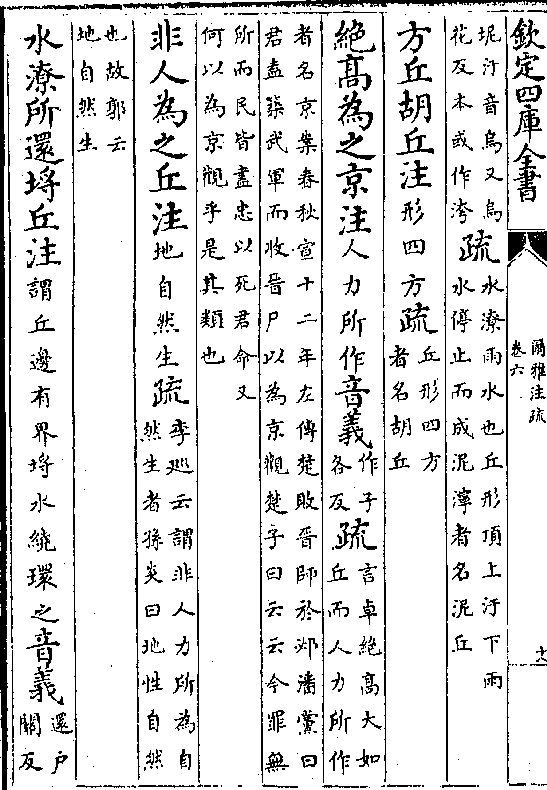 欽定四庫全書
爾雅注疏
卷六
十六
坭汙音烏又烏
花反本或作洿
疏
水潦雨水也丘形頂上汙下雨
水停止而成泥濘者名泥丘
方丘胡丘注形四方疏
丘形四方
者名胡丘
絶髙為之京注人力所作音義
作子
各反
疏
言卓絶高大如
丘而人力所作
者名京案春秋宣十二年左傳楚敗晉師於邲潘黨曰
君盍築武軍而收晉尸以為京觀楚子曰云云今罪無
所而民皆盡忠以死君命又
何以為京觀乎是其類也
非人為之丘注地自然生疏
李廵云謂非人力所為自
然生者孫炎曰地性自然
也故郭云
地自然生
水潦所還埒丘注謂丘邊有界埒水繞環之音義
還户
關反